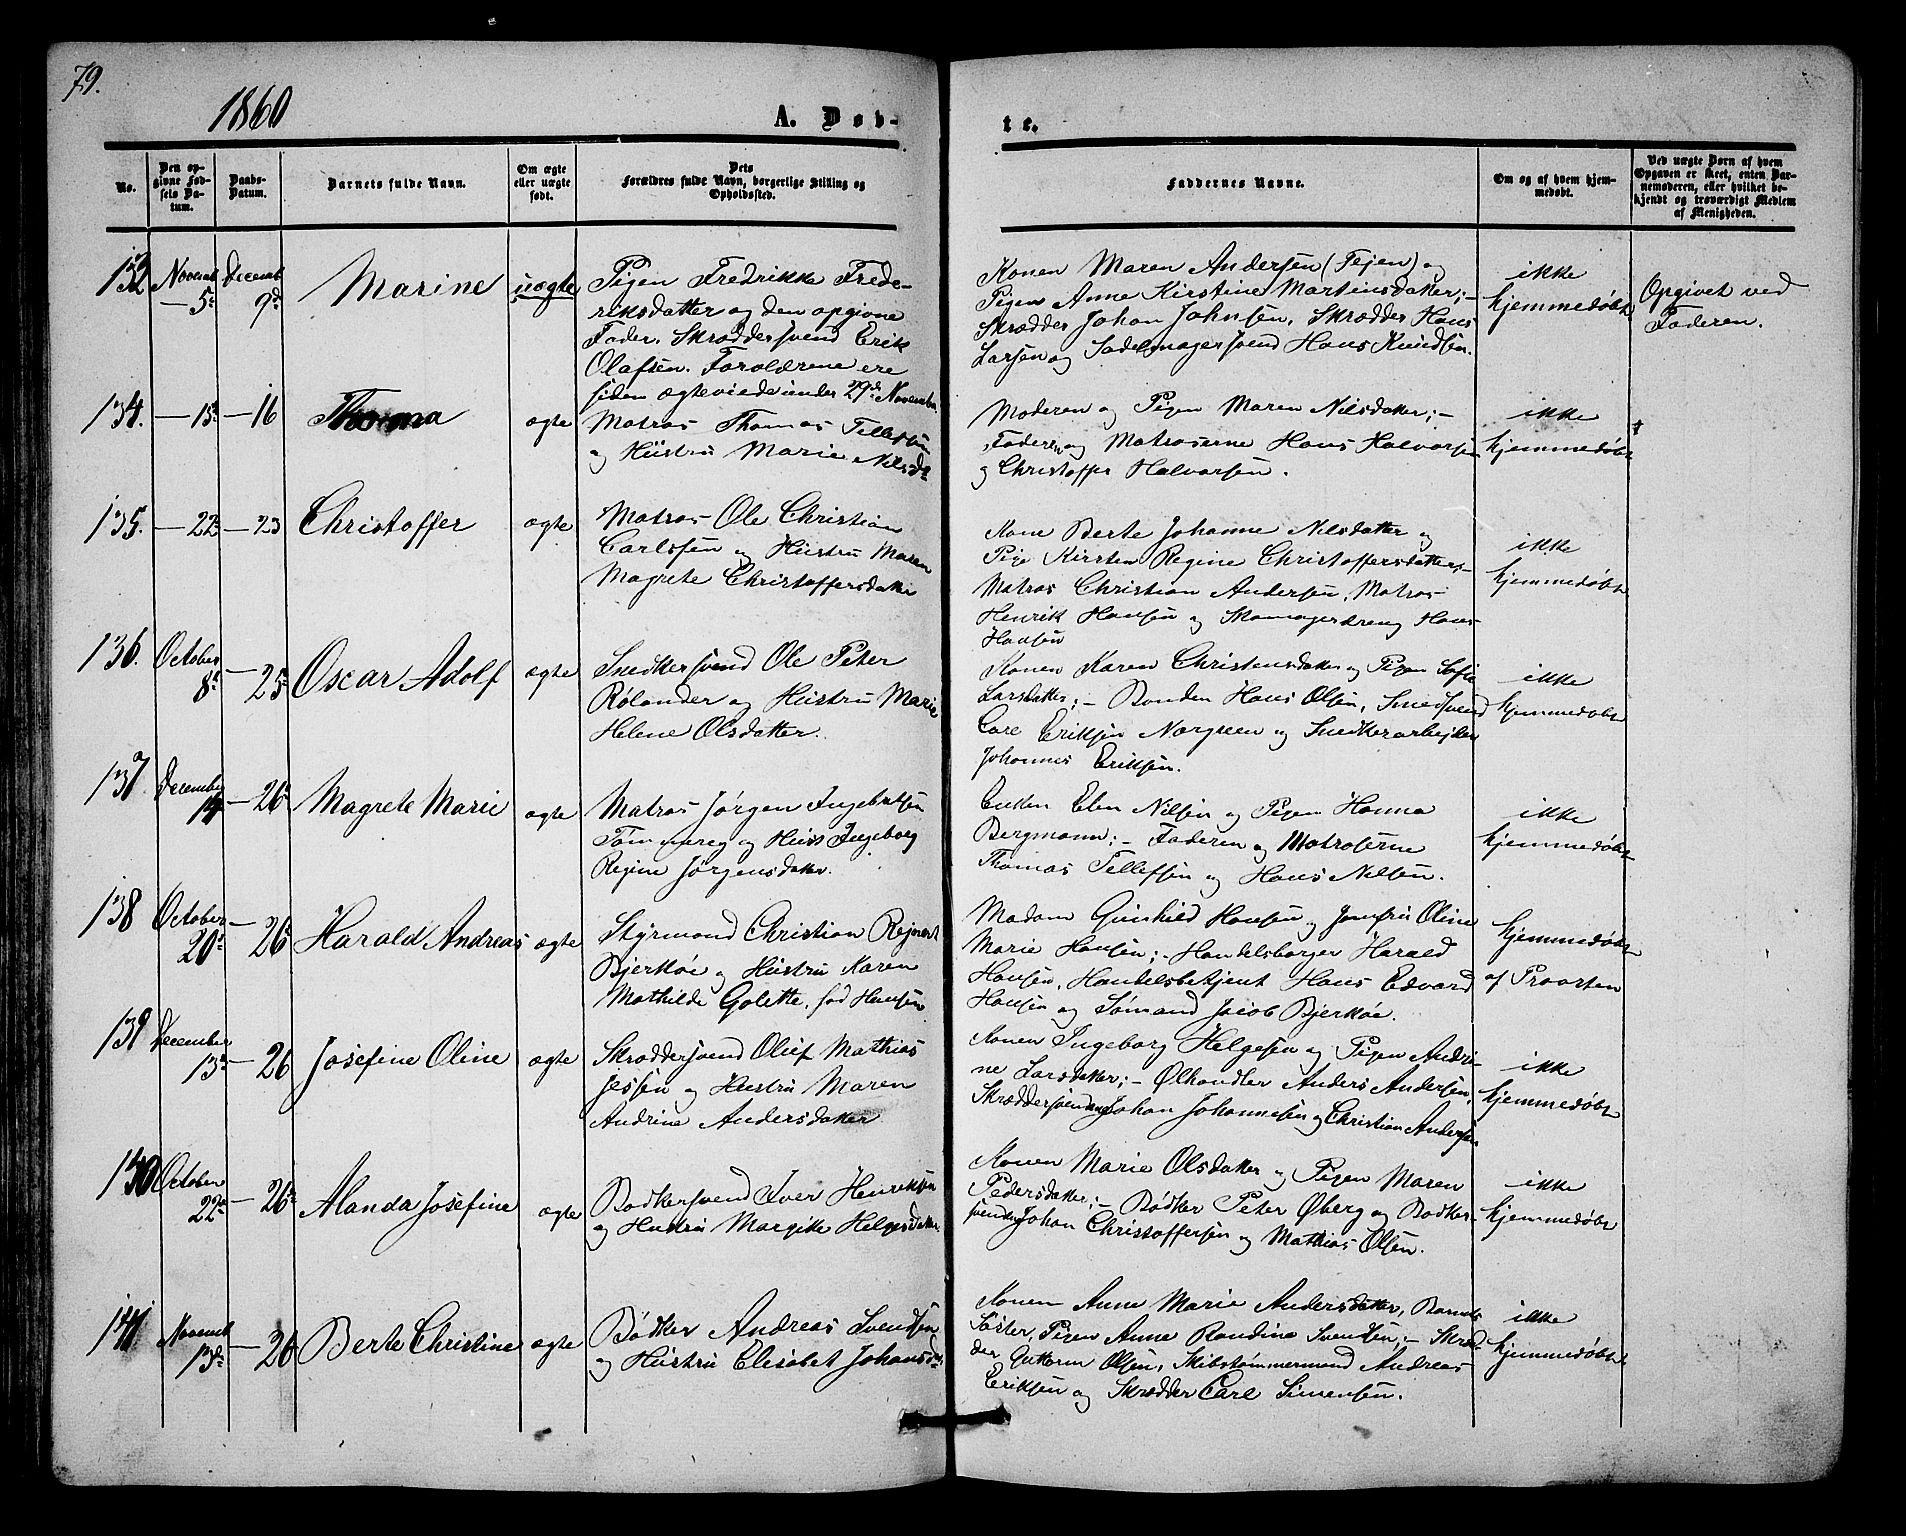 79.
1860
A. Døb-
te.
No.
Den op-
givne Fød-
sels Da-
tum.
Daabs-
Datum.
Barnets fulde Navn.
Om ægte
eller uægte
født.
Dets
Forældres fulde Navn, borgerlige Stilling og
Opholdssted.
Faddernes Navne.
Om og af hvem hjem-
medøbt.
Ved uægte Børn af hvem
Opgaven er skeet, enten Bar-
nemoderen, eller hvilket be-
kjendt og troværdigt Medlem
af Menigheden.
133 Novemb 5 Decemb 9d Marine uægte
Pigen Fredrikke Frede-
riksdatter og den opgivne
Fader, Skræddersvend Erik
Olafsen. Forældrene ere
siden ægteviede under 29d Novembr
Konen Maren Andersen (Tejen) og
Pigen Anne Kirstine Martinsdatter; -
Skrædder Johan Johnsen, Skrædder Hans
Larsen og Sadelmagersvend Hans Knudsen.
ikke
hjemmedøbt
Opgivet ved
Faderen.
134. — 15 — 16 Thoma ægte
Matros Thomas Tellefsen
og Hustru Marie Nilsd
Moderen og Pigen Maren Nilsdatter; -
Faderen og Matroserne Hans Halvorsen
og Christoffer Halvorsen.
ikke
hjemmedøbt
135. — 22 — 23 Christoffer ægte
Matros Ole Christian
Carlsen og Hustru Maren
Magrete Christoffersdatter
Kone Berte Johanne Nilsdatter og
Pige Kirsten Regine Christoffersdatter; -
Matros Christian Andersen, Matros
Henrik Hansen og Skomagerdreng Hans
Hansen
ikke
hjemmedøbt
136. October 8 — 25 Oscar Adolf ægte
Snedkersvend Ole Peter
Rølander og Hustru Marie
Helene Olsdatter.
Konen Karen Christensdatter og Pigen Sofie
Larsdatter; - Bonden Hans Olsen, Smedsvend
Carl Eriksen Norgreen og Snedkerarbejder
Johannes Eriksen.
ikke
hjemmedøbt
137 December 14 — 26 Magrete Marie ægte
Matros Jørgen Ingebretsen
Tømmereg og Hust Ingeborg
Regine Jørgensdatter.
Enken Elen Nilsen og Pigen Hanna
Bergmann; - Faderen og Matroserne
Thomas Tellefsen og Hans Nilsen.
ikke
hjemmedøbt
138 October 20 — 26 Harald Andreas ægte
Styrmand Christian Rejnert
Bjerkøe og Hustru Karen
Mathilde Golette, fød Hansen
Madam Gunhild Hansen og Jomfru Oline
Marie Hansen; - Handelsborger Harald
Hansen, Handelsbetjent Hans Edvard
Hansen og Sømand Jacob Bjerkøe.
hjemmedøbt
af Provsten
139 December 13 — 26 Josefine Oline ægte
Skræddersvend Oluf Mathias
Jessen og Hustru Maren
Andrine Andersdatter
Konen Ingeborg Helgesen og Pigen Andri-
ne Larsdatter; - Ølhandler Anders Andersen,
Skræddersvendene Johan Johannesen og Christian Andersen
ikke
hjemmedøbt
140 October 22 — 26 Alanda Josefine ægte
Bødkersvend Iver Henriksen
og Hustru Margitte Helgesdatter
Konen Marie Olsdatter og Pigen Maren
Pedersdatter; - Bødker Peter Øberg og Bødker-
svendene Johan Christoffersen og Mathias Olsen.
ikke
hjemmedøbt
141 Novemb 13 — 26 Berte Christine ægte
Bødker Andreas Svendsen
og Hustru Elisabet Johansd
Konen Anne Marie Andersdatter, Barnets
Søster, Pigen Anne Randine Svendsen; - Skræd-
der Guttorm Olsen, Skibstømmermand Andreas
Eriksen og Skrædder Carl Simensen.
ikke
hjemmedøbt